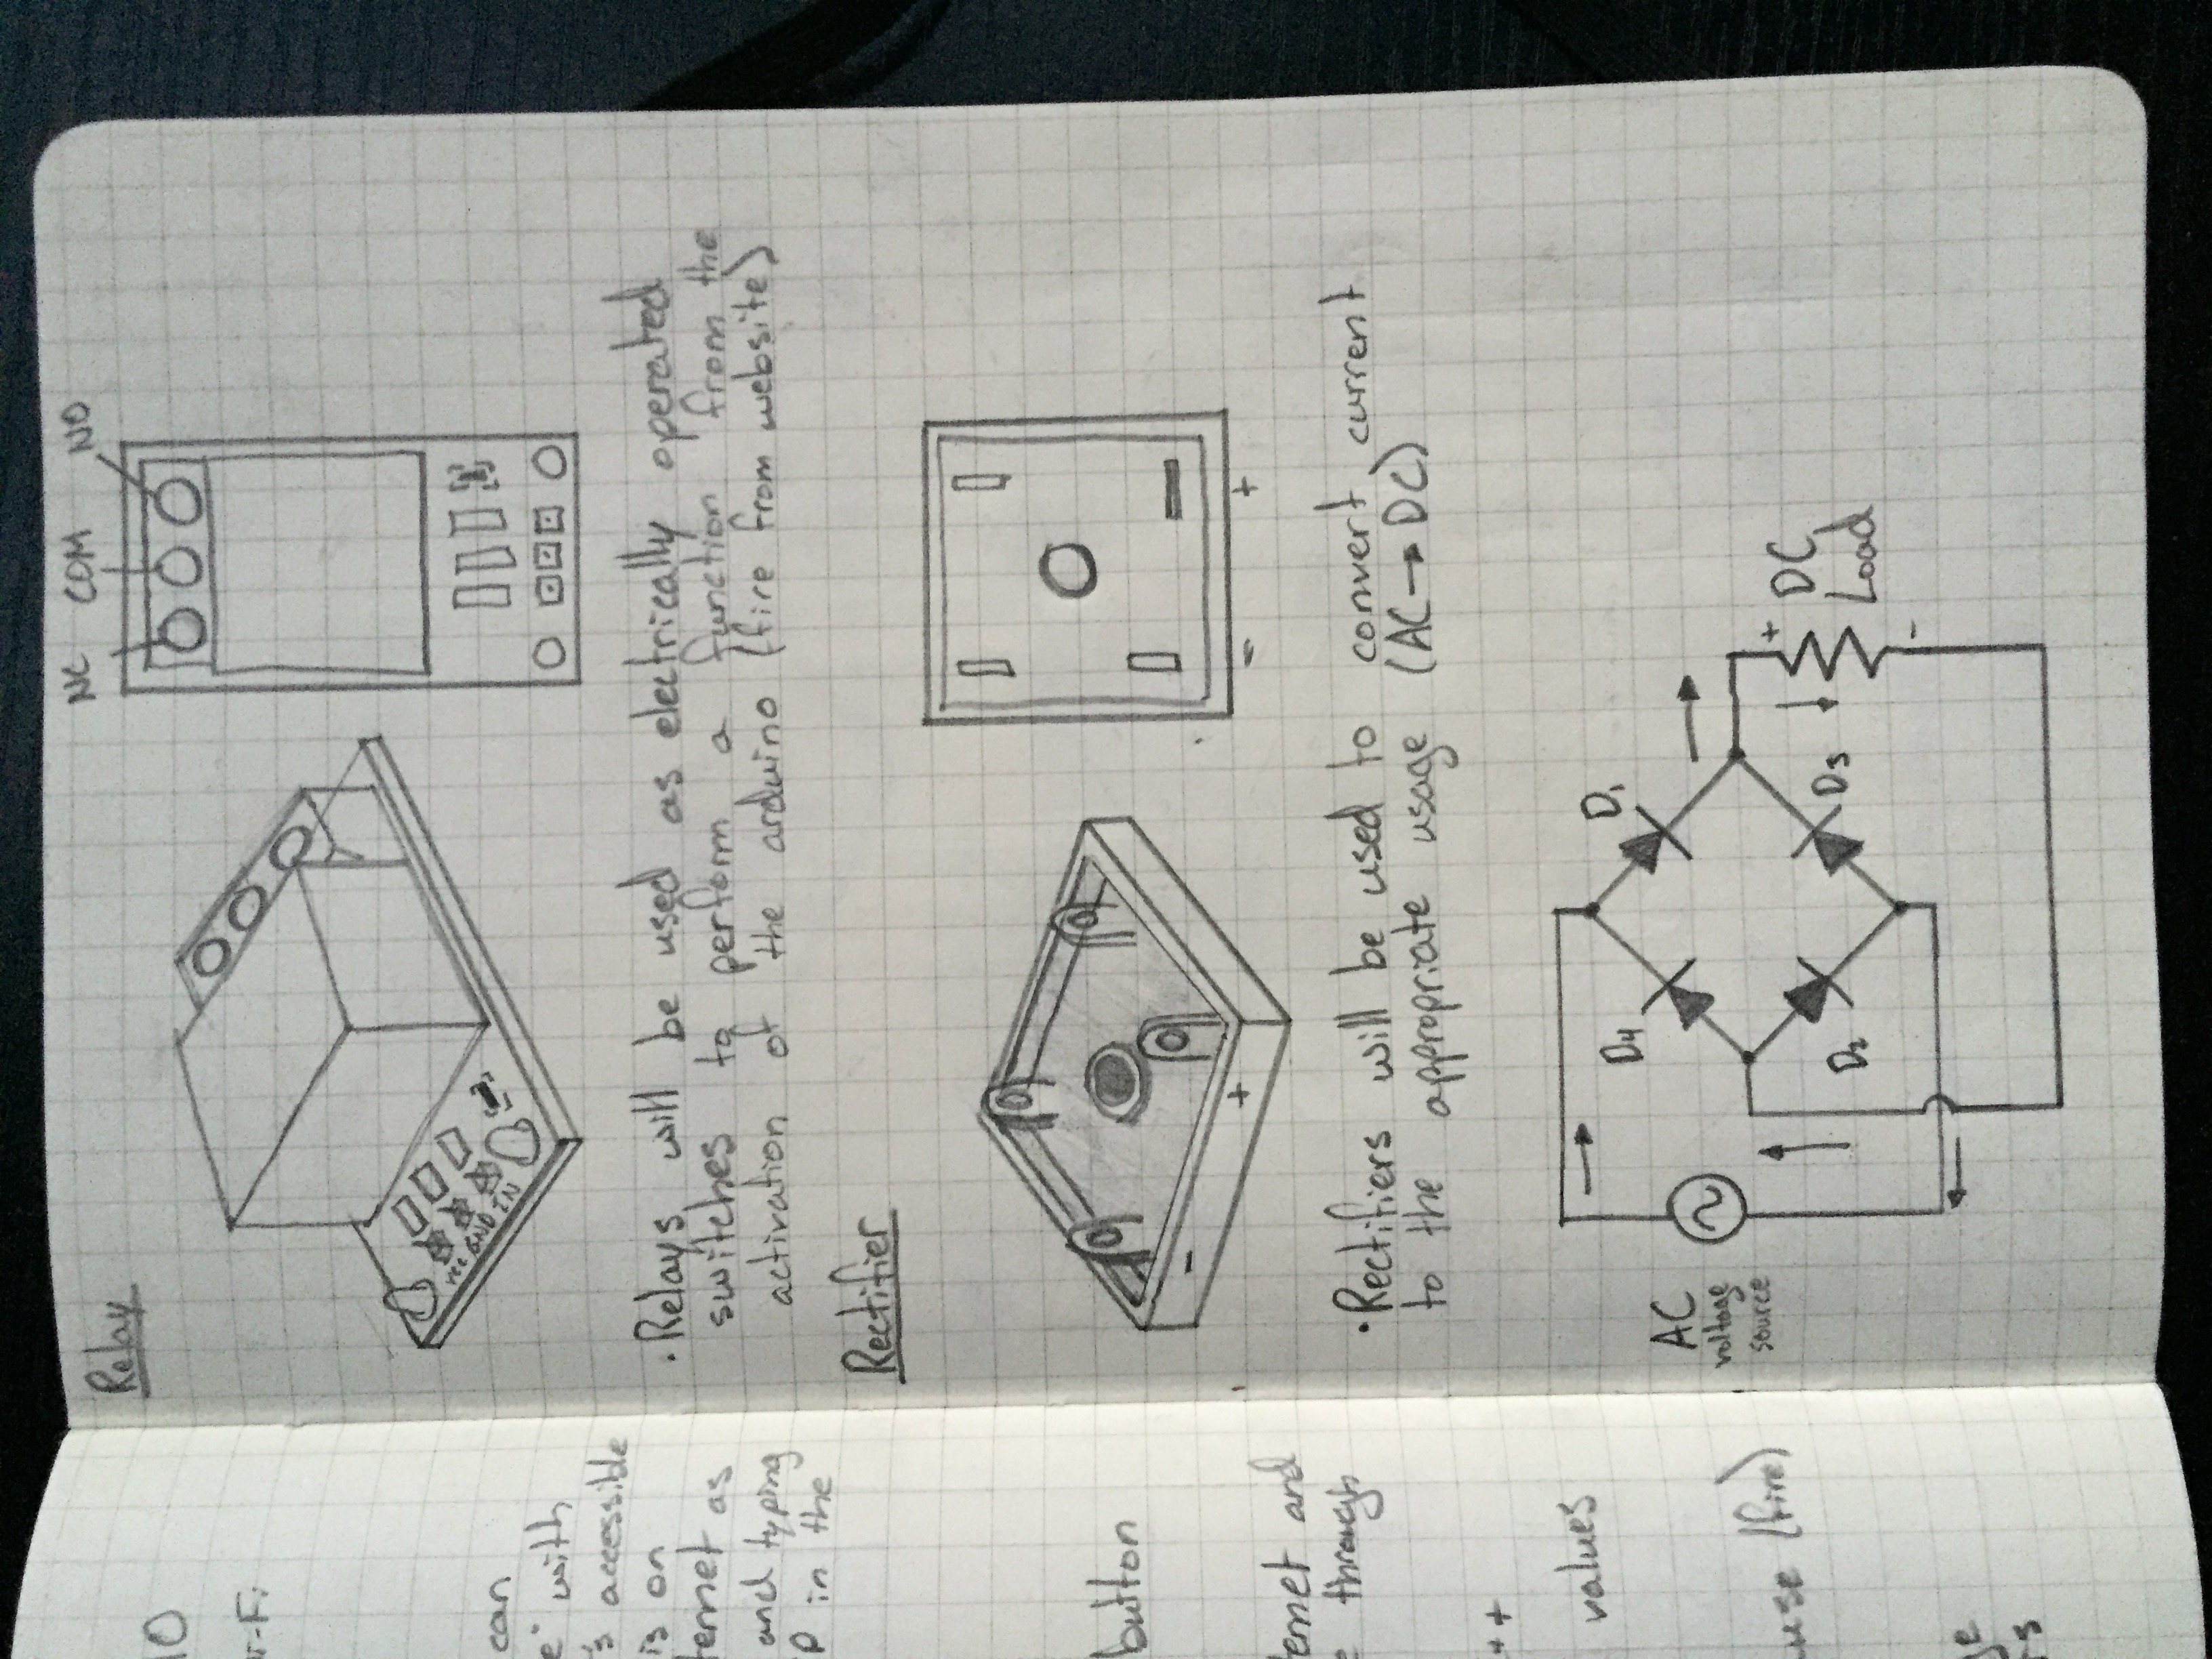 10
can
with
's accessible
is on
ternet as
and typing
P in the
button
ternet and
e through
++
values
use (fire)
Relay
NC COM NO
VCC GND IN
• Relays will be used as electrically operated
switches to perform a function from the
activation of the arduino (fire from website)
Rectifier
- +
- +
• Rectifiers will be used to convert current
to the appropriate usage (AC → DC)
D4 D1
AC
voltage
source
D2 D3
+
DC
Load
-